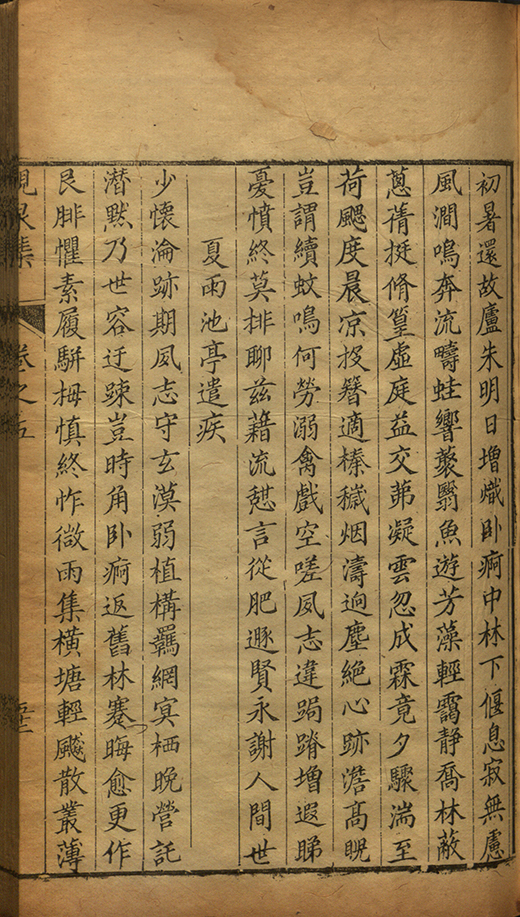 初暑還故廬朱明日增熾臥痾中林下偃息寂無慮
風澗鳴奔流疇蛙響褧翳魚遊芳藻輕靄靜喬林蔽
蒽蒨挺脩篁虛庭益交茀凝雲忽成霖竟夕驟湍至
荷颸度晨凉投簪適榛穢烟濤逈塵絕心跡澹高睨
豈謂續蚊鳴何勞溺禽戲空嗟夙志違跼蹐增遐睇
憂憤終莫排聊茲藉流憩言從肥遯賢永謝人間世
夏雨池亭遣疾
少懷淪跡期夙志守玄漠弱植構羈網寘栖晚營託
潛默乃世容迂踈豈時角臥痾返舊林蹇晦愈更作
艮腓懼素履駢栂慎終怍微雨集橫塘輕飈散叢薄
卷之五